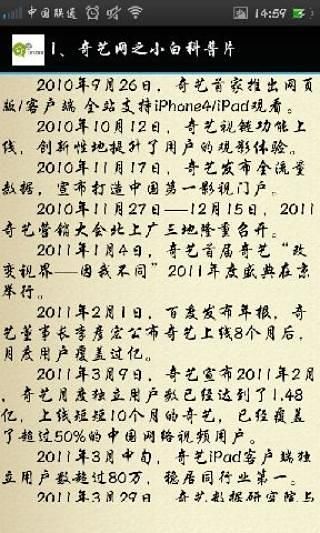 中国联通 14:59
1、奇艺网之小白科普片
2010年9月26日，奇艺首家推出网页
版/客户端 全站支持iPhone4/iPad观看。
2010年10月12日，奇艺视链功能上
线，创新性地提升了用户的观影体验。
2010年11月17日，奇艺发布全流量
数据，宣布打造中国第一影视门户。
2010年11月27日——12月15日，2011
奇艺营销大会北上广三地隆重召开。
2011年1月4日，奇艺首届奇艺“欢
变视界——因我不同”2011年度盛典在京
举行。
2011年2月1日，百度发布年报，奇
艺董事长李彦宏公布奇艺上线8个月后，
月度用户覆盖过亿。
2011年3月9日，奇艺宣布2011年2月
，奇艺月度独立用户数已经达到了1.48
亿，上线短短10个月的奇艺，已经覆盖
了超过50%的中国网络视频用户。
2011年3月中旬，奇艺iPad客户端独
立用户数超过80万，稳居同行业第一。
2011年3月29日，奇艺数据研究院与